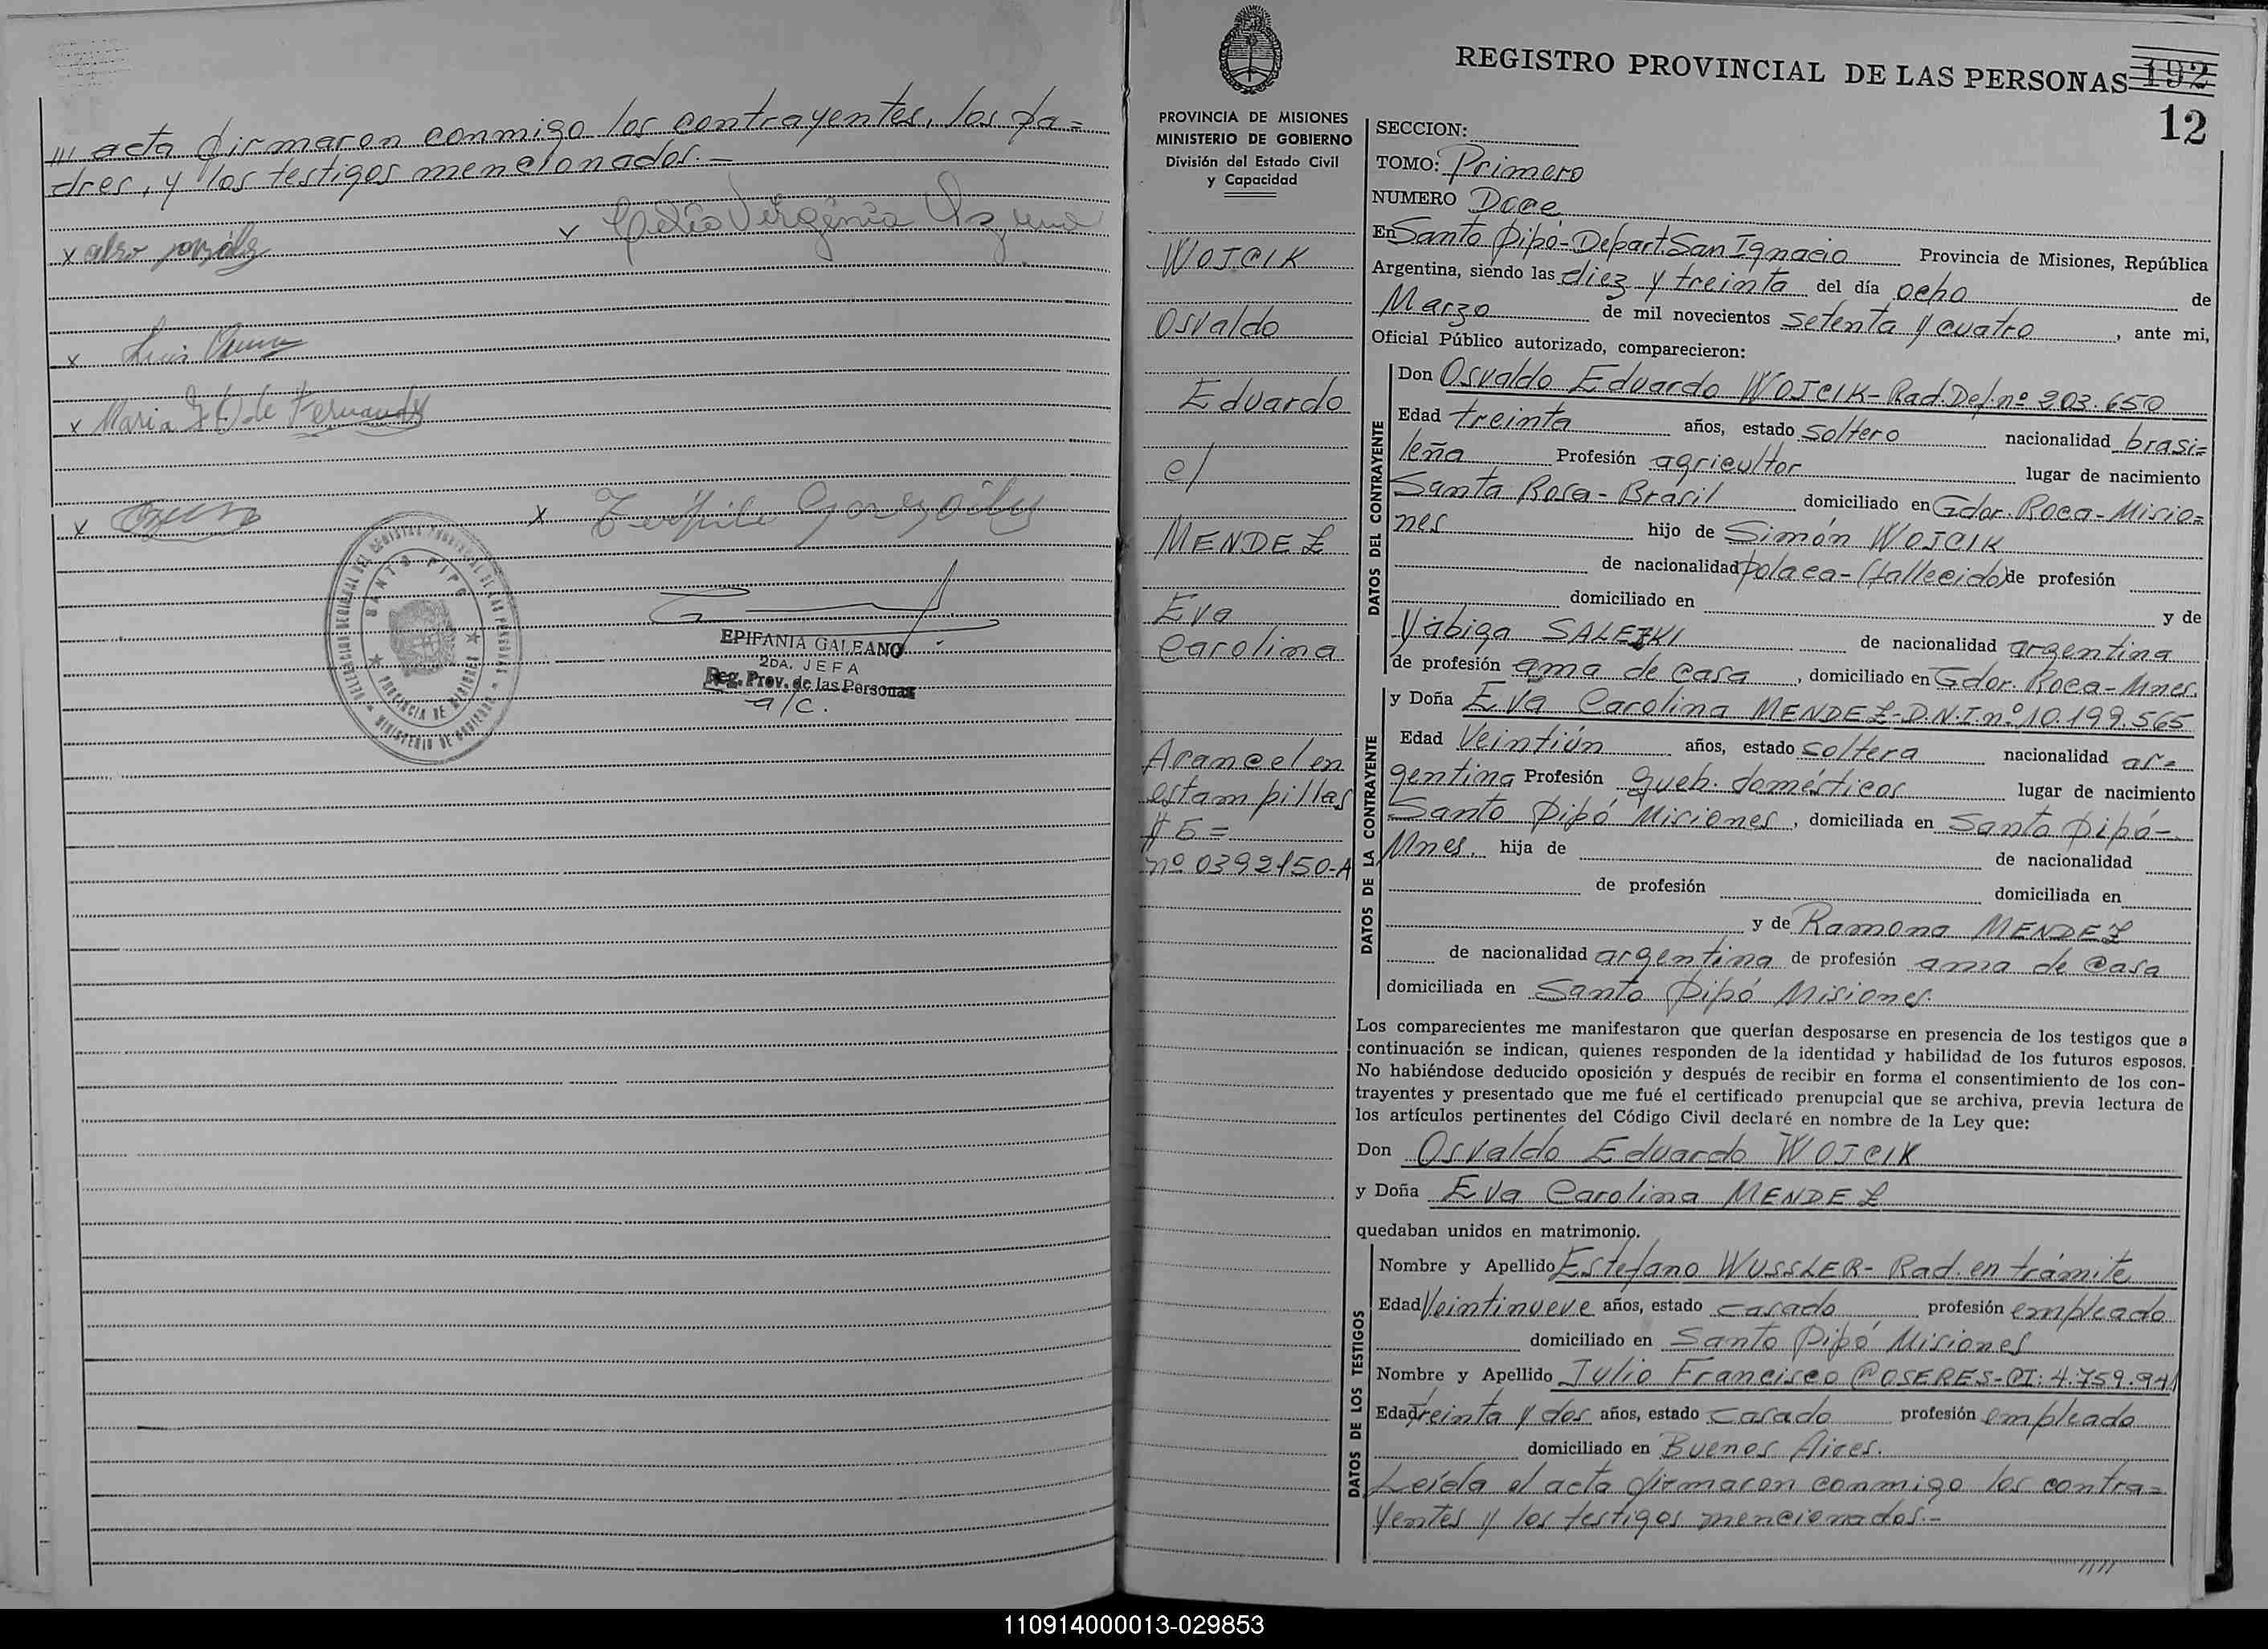 /// acta firmaron conmigo los contrayentes, los pa=
dres, y los testigos mencionados.-
x
x Celia Virginia
x Luis
x Maria de Fernandez
x
x
SANTO PIPO
PROVINCIA DE MISIONES
EPIFANIA GALEANO
2DA. JEFA
Reg. Prov. de las Personas
a/c.
REGISTRO PROVINCIAL DE LAS PERSONAS 192
12
PROVINCIA DE MISIONES
MINISTERIO DE GOBIERNO
División del Estado Civil
y Capacidad
WOJCIK
Osvaldo
Eduardo
c/
MENDEZ
Eva
Carolina
Arancel en
estampillas
$ 5=
nº 0392150-A
SECCION:
TOMO: Primero
NUMERO Doce
En Santo Pipó-Depart. San Ignacio Provincia de Misiones, República
Argentina, siendo las diez y treinta del día ocho de
Marzo de mil novecientos setenta y cuatro, ante mi,
Oficial Público autorizado, comparecieron:
DATOS DEL CONTRAYENTE
Don Osvaldo Eduardo WOJCIK-Rad.Def.nº 203.650
Edad treinta años, estado soltero nacionalidad brasi=
leña Profesión agricultor lugar de nacimiento
Santa Rosa-Brasil domiciliado en Gdor. Roca-Misio=
nes hijo de Simón WOJCIK
de nacionalidad polaca-(fallecido) de profesión
domiciliado en y de
Yabiga SALEZKI de nacionalidad argentina
de profesión ama de casa, domiciliado en Gdor. Roca-Mnes.
DATOS DE LA CONTRAYENTE
y Doña Eva Carolina MENDEZ-D.N.I.nº 10.199.565
Edad Veintiún años, estado soltera nacionalidad ar=
gentina Profesión queh. domésticos lugar de nacimiento
Santo Pipó Misiones, domiciliada en Santo Pipó-
Mnes. hija de de nacionalidad
de profesión domiciliada en
y de Ramona MENDEZ
de nacionalidad argentina de profesión ama de casa
domiciliada en Santo Pipó Misiones.
Los comparecientes me manifestaron que querían desposarse en presencia de los testigos que a
continuación se indican, quienes responden de la identidad y habilidad de los futuros esposos.
No habiéndose deducido oposición y después de recibir en forma el consentimiento de los con-
trayentes y presentado que me fué el certificado prenupcial que se archiva, previa lectura de
los artículos pertinentes del Código Civil declaré en nombre de la Ley que:
Don Osvaldo Eduardo WOJCIK
y Doña Eva Carolina MENDEZ
quedaban unidos en matrimonio.
DATOS DE LOS TESTIGOS
Nombre y Apellido Estefano WUSSLER- Rad. en trámite
Edad Veintinueve años, estado casado profesión empleado
domiciliado en Santo Pipó Misiones
Nombre y Apellido Julio Francisco COSERES-CI: 4.759.941
Edad treinta y dos años, estado casado profesión empleado
domiciliado en Buenos Aires.
Leída el acta firmaron conmigo los contra=
yentes y los testigos mencionados.-
////
110914000013-029853